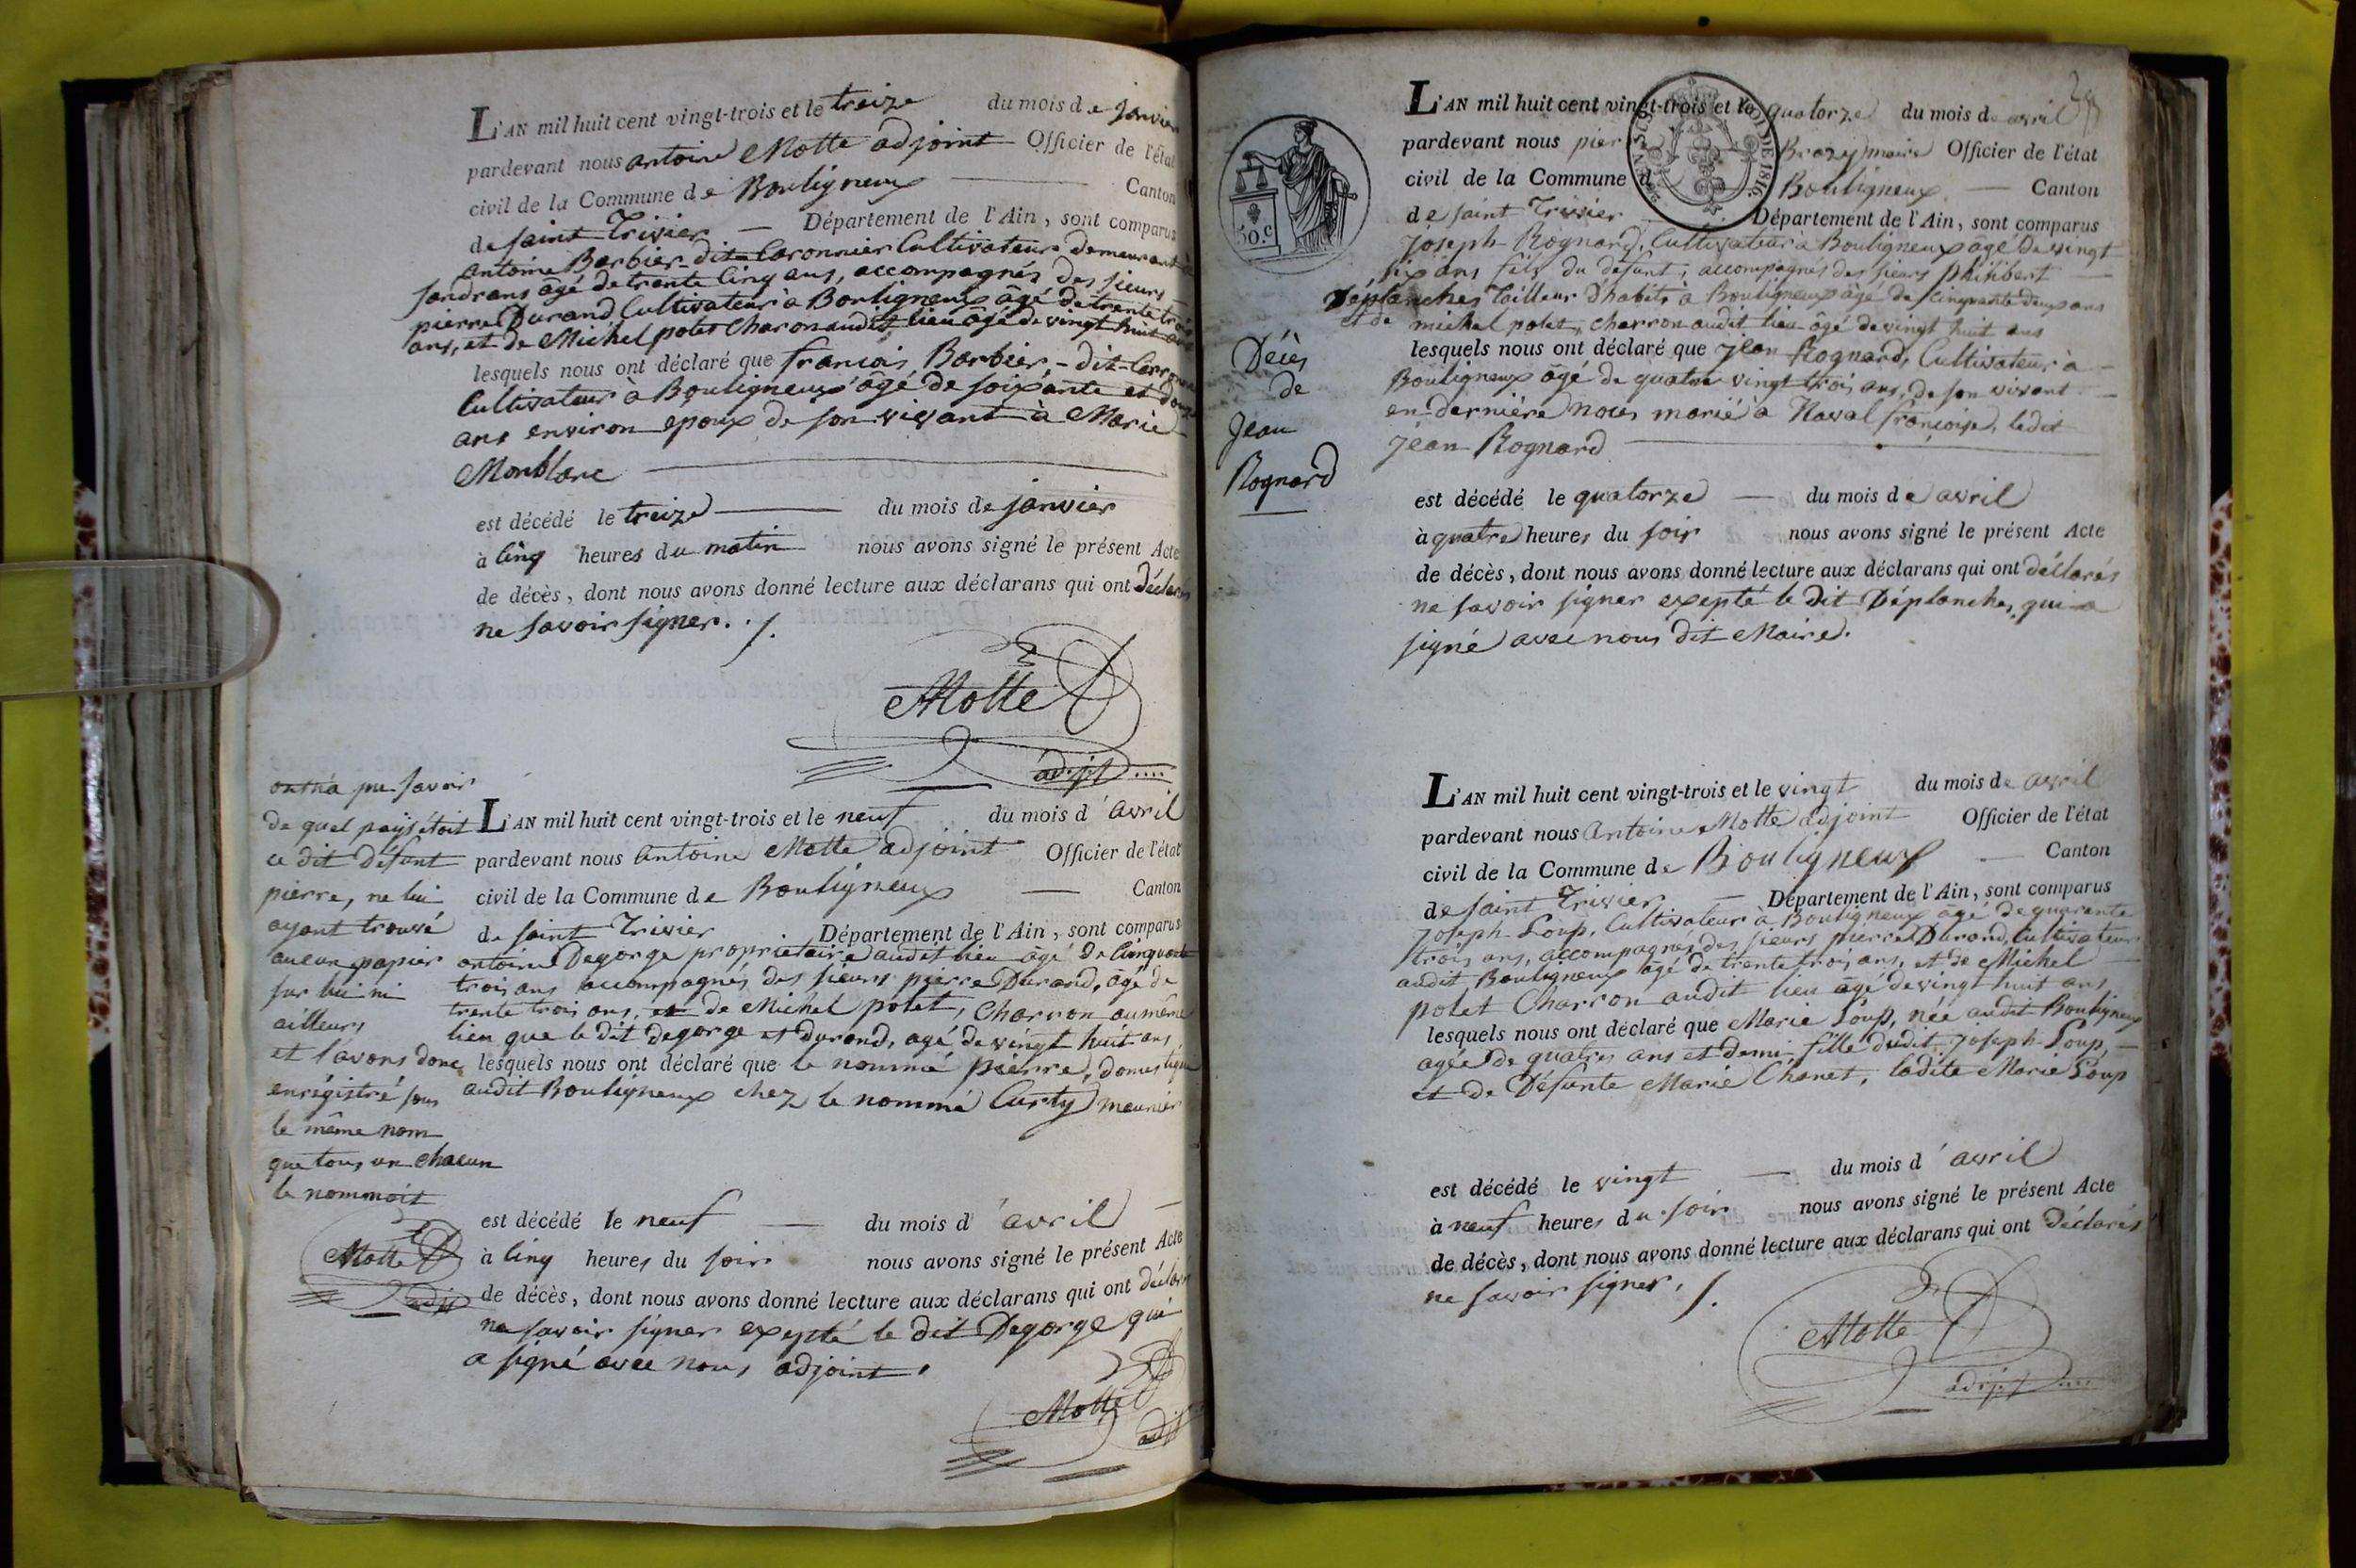 L'AN mil huit cent vingt-trois et le treize du mois de janvier
pardevant nous antoine Motte adjoint Officier de l'état
civil de la Commune de Bouligneux Canton
de saint Trivier Département de l'Ain, sont comparus
antoine Barbier dit Caronnier Cultivateur demeurant
sandrans agé de trente Cinq ans, accompagnés des sieurs
pierre Durand Cultivateur à Bouligneux âgé de trente trois
ans, et de Michel polet Charon audit lieu âgé de vingt huit ans
lesquels nous ont déclaré que francois Barbier, - dit -
Cultivateur à Bouligneux âgé de soixante et douze
ans environ epoux de son vivant à Marie
Monblanc
est décédé le treize du mois de janvier
à Cinq heures du matin nous avons signé le présent Acte
de décès, dont nous avons donné lecture aux déclarans qui ont déclarés
ne savoir signer. /.
Motte
adjt
ont na pu savoir
de quel pays étoit
ce dit défunt
pierre, ne lui
ayant trouvé
aucun papier
sur lui ni
ailleurs
et l'avons donc
enrégistré sous
le même nom
que tous un chacun
le nommoit
Motte
adjt
L'AN mil huit cent vingt-trois et le neuf du mois d'avril
pardevant nous Antoine Motte adjoint Officier de l'état
civil de la Commune de Bouligneux Canton
de saint Trivier Département de l'Ain, sont comparus
antoine Degorge proprietaire audit lieu âgé de Cinquante
trois ans accompagnés des sieurs pierre Durand, âgé de
trente trois ans, et de Michel polet, Charron au même
lieu que le dit degorge et durand, agé de vingt huit ans
lesquels nous ont déclaré que le nommé pierre, domestique
audit Bouligneux chez le nommé Curty meunier
est décédé le neuf du mois d'avril
à Cinq heures du soir nous avons signé le présent Acte
de décès, dont nous avons donné lecture aux déclarans qui ont déclarés
ne savoir signer expté le dit Degorge qui
a signé avec nous adjoint.
Motte
adjt
L'AN mil huit cent vingt-trois et le quatorze du mois de avril
pardevant nous Brazy maire Officier de l'état
civil de la Commune de Bouligneux Canton
de saint Trivier Département de l'Ain, sont comparus
joseph Rognard, Cultivateur à Bouligneux âgé de vingt
six ans fils du défunt, accompagnés des sieurs philibert
Déplanches Tailleur d'habits à Bouligneux âgé de Cinquante deux ans
et de michel polet, charron audit lieu âgé de vingt huit ans
lesquels nous ont déclaré que jean Rognard, Cultivateur à
Bouligneux âgé de quatre vingt trois ans, de son vivant
en dernière noces marié a Naval francoise, ledit
jean Rognard
50.c
Décès
de
Jean
Rognard
est décédé le quatorze du mois de avril
à quatre heures du soir nous avons signé le présent Acte
de décès, dont nous avons donné lecture aux déclarans qui ont déclarés
ne savoir signer expepté le dit Déplanches, qui a
signé avec nous dit Maire.
L'AN mil huit cent vingt-trois et le vingt du mois de avril
pardevant nous Antoine Motte adjoint Officier de l'état
civil de la Commune de Bouligneux Canton
de saint Trivier Département de l'Ain, sont comparus
joseph Loup, Cultivateur à Bouligneux âgé de quarente
trois ans, accompagnés des sieurs pierre Durand, Cultivateur
audit Bouligneux âgé de trente trois ans, et de Michel
polet Charron audit lieu âgé de vingt huit ans
lesquels nous ont déclaré que Marie Loup, née audit Bouligneux
agée de quatres ans et demi fille dudit joseph Loup
et de Défunte Marie Chanet, ladite Marie Loup
est décédé le vingt du mois d'avril
à neuf heures du soir nous avons signé le présent Acte
de décès, dont nous avons donné lecture aux déclarans qui ont déclarés
ne savoir signer. /.
Motte
adjt